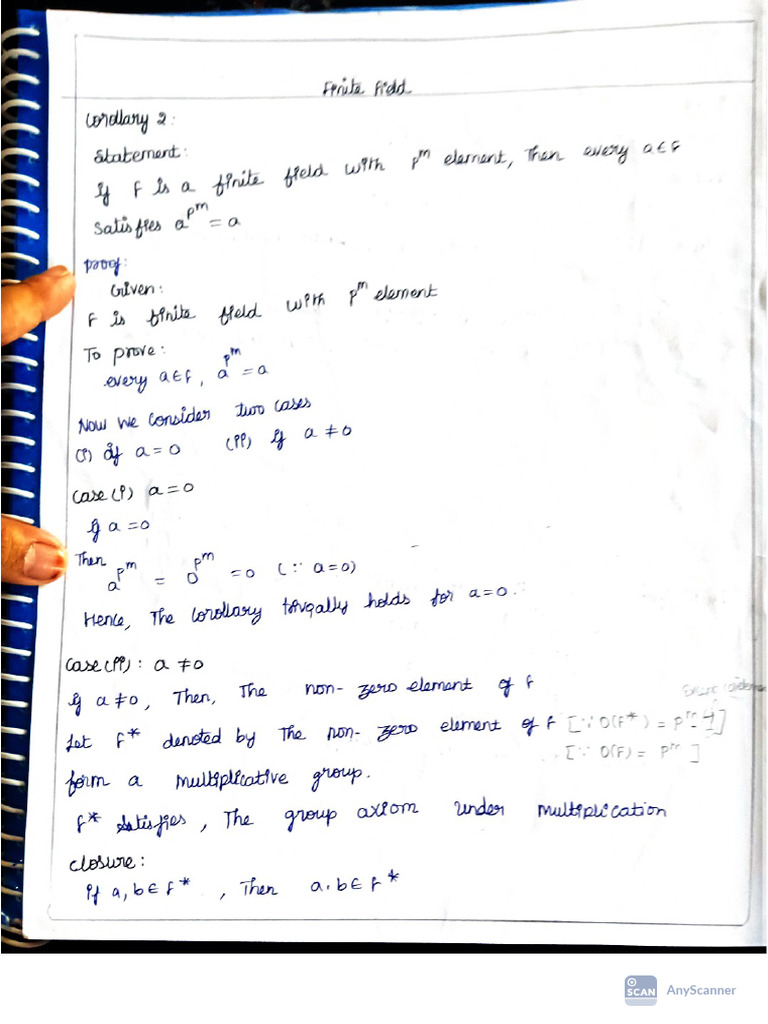 Finite Field
Corollary 2:
Statement:
If F is a finite field with p^m element, Then every a∈F
Satisfies a^p^m = a
Proof:
Given:
F is finite field with p^m element
To prove:
every a∈F, a^p^m = a
Now we consider two cases
(i) if a = 0 (ii) if a ≠ 0
Case (i) a = 0
If a = 0
Then
a^p^m = 0^p^m = 0 (∵ a=0)
Hence, The Corollary holds for a = 0.
Case (ii): a ≠ 0
If a ≠ 0, Then, The non-zero element of F
Let F* denoted by The non-zero element of F [∵ O(F*) = p^m-1]
[∵ O(F) = p^m]
form a multiplicative group.
F* Satisfies, The group axiom under multiplication
Closure:
If a, b ∈ F*, Then a.b ∈ F*
SCAN AnyScanner